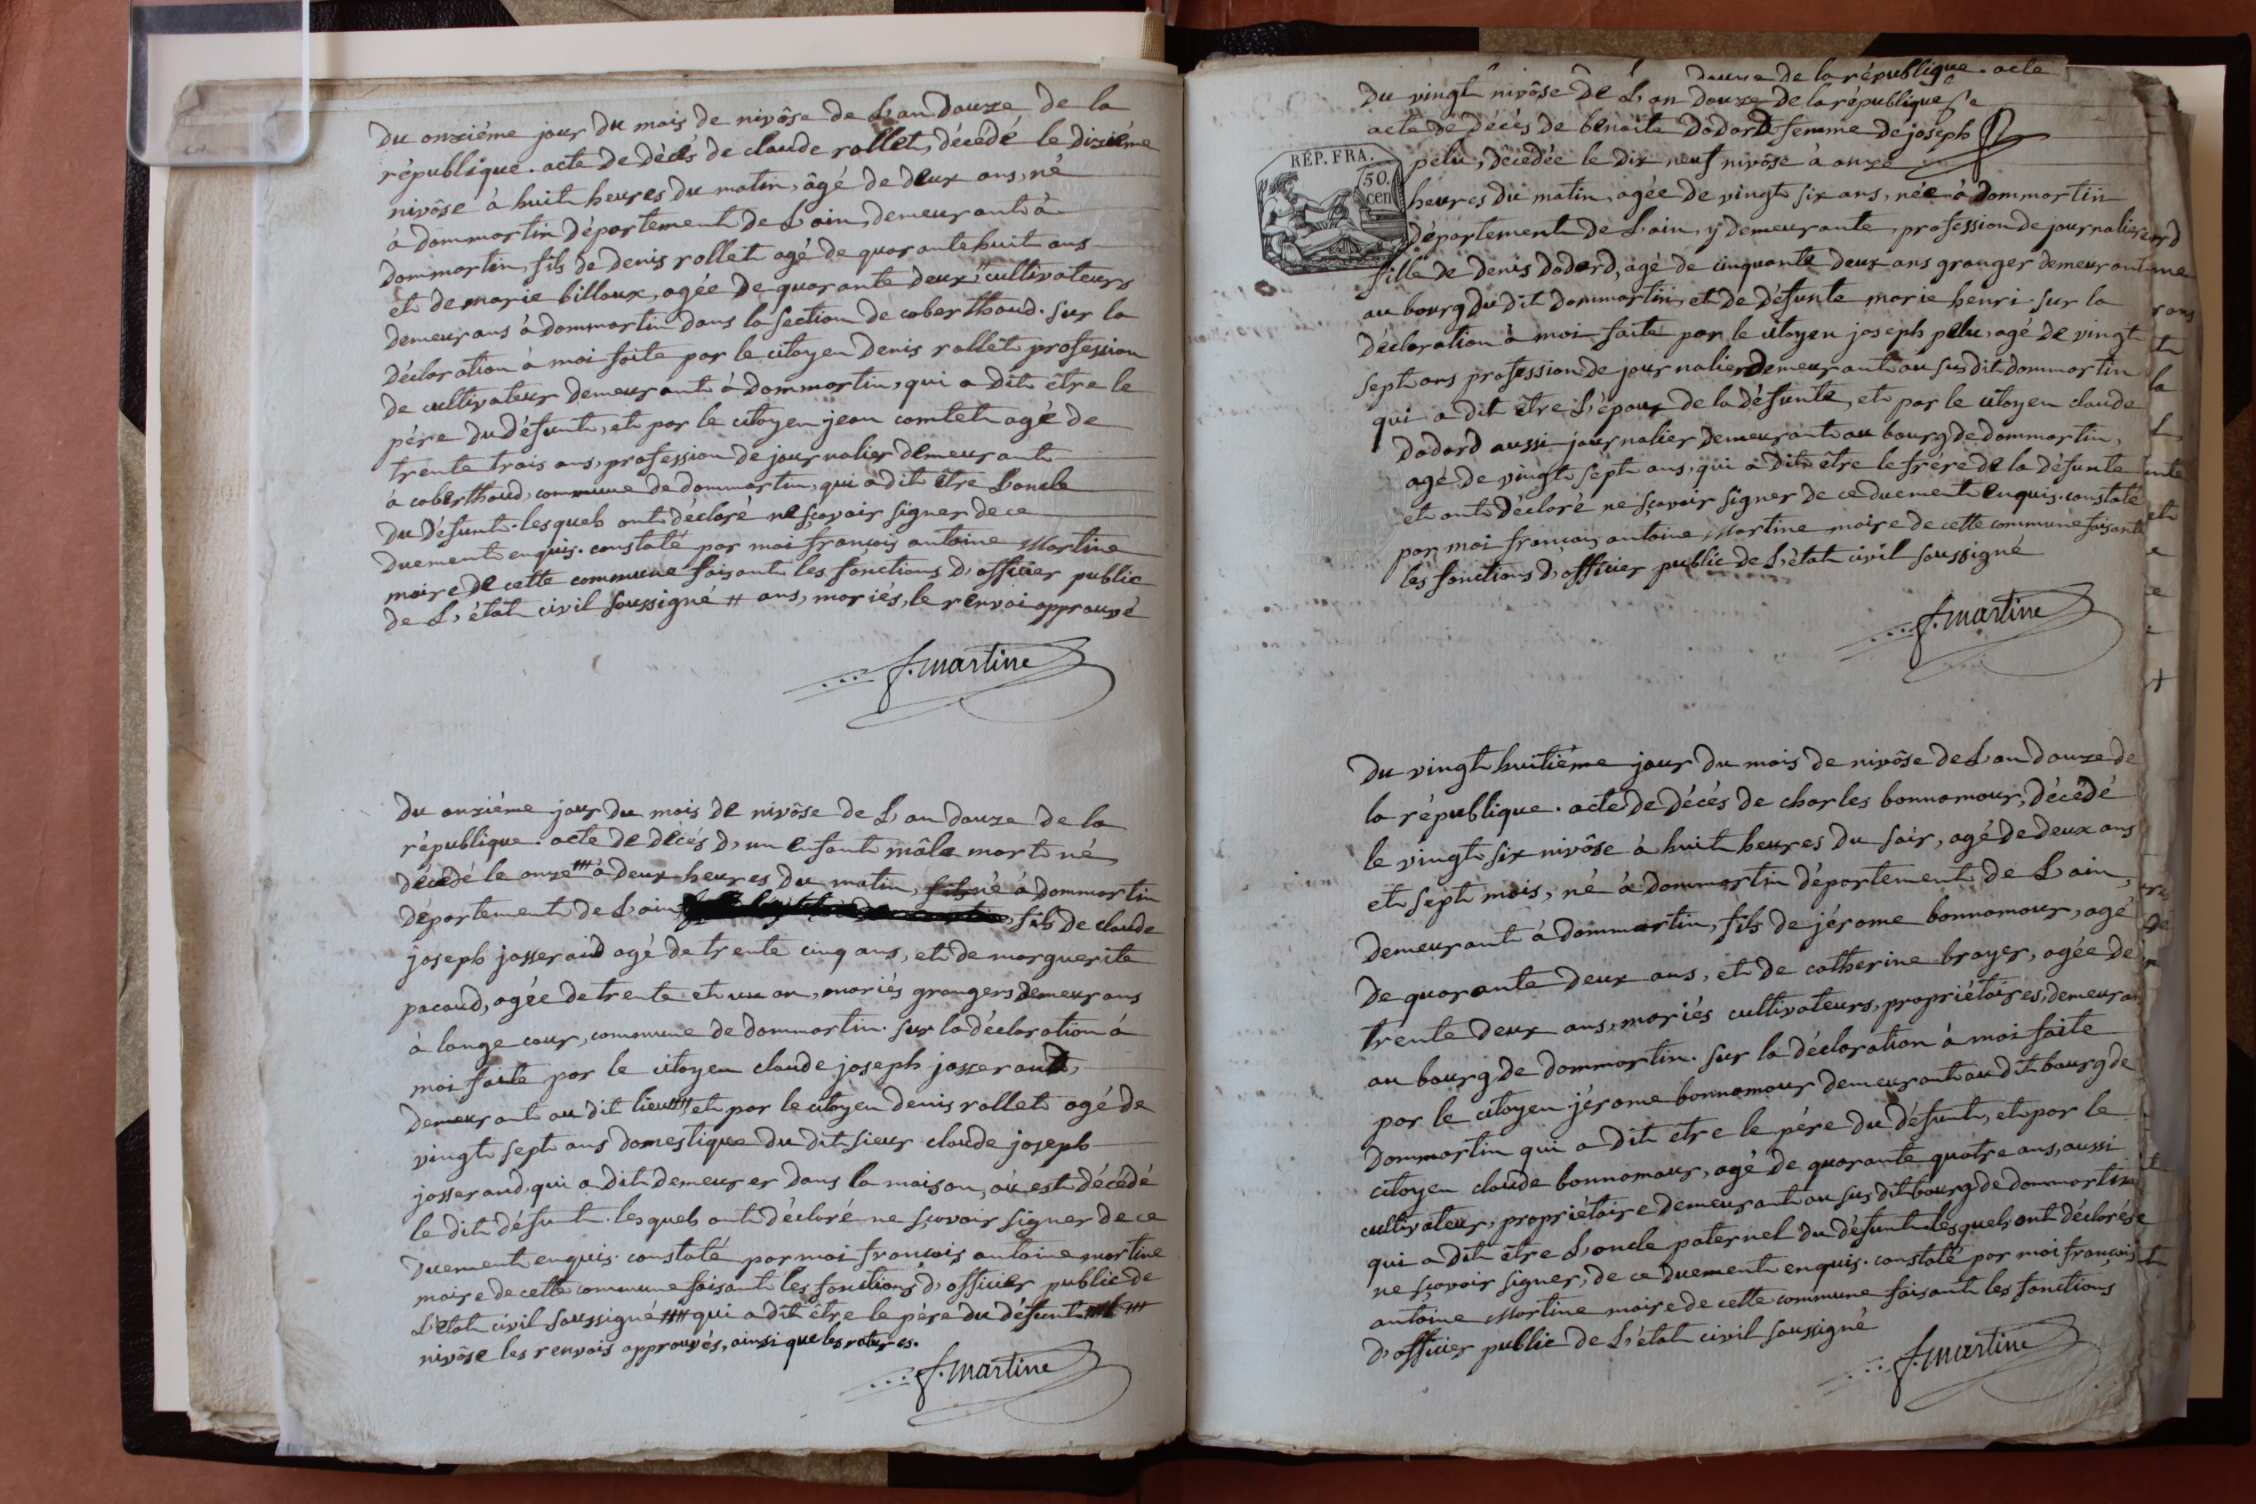 du onziéme jour du mois de nivôse de L'an douze de la
république. acte de décès de claude rollet, décédé le dixiéme
nivôse à huit heures du matin, âgé de deux ans, né
à dommartin département de L'ain, demeurant à
dommartin, fils de denis rollet agé de quarante huit ans
et de marie billoux, agée de quarante deux # cultivateurs
demeurans à dommartin dans la section de coberthoud. sur la
déclaration à moi faite par le citoyen denis rollet profession
de cultivateur demeurant à dommartin, qui a dit être le
pére du défunt, et par le citoyen jean comtet agé de
trente trois ans, profession de journalier demeurant
à coberthoud, commune de dommartin, qui a dit être L'oncle
du défunt. lesquels ont déclaré ne sçavoir signer de ce
duement enquis. constaté par moi françois antoine Martine
maire de cette commune faisant les fonctions d'officier public
de L'état civil soussigné # ans, mariés, le renvoi approuvé
f. martine
du onziéme jour du mois de nivôse de L'an douze de la
république. acte de decés d'un enfant mâle mort né,
décédé le onze ## à deux heures du matin, fils né à dommartin
département de L'ain, fils de claude
joseph josserand agé de trente cinq ans, et de marguerite
pacaud, agée de trente et un an, mariés grangers demeurans
à longe cour, commune de dommartin. sur la déclaration à
moi faite par le citoyen claude joseph josserand,
demeurant au dit lieu ## et par le citoyen denis rollet agé de
vingt sept ans domestique du dit sieur claude joseph
josserand, qui a dit demeurer dans la maison, où est décédé
le dit défunt. lesquels ont déclaré ne sçavoir signer de ce
duement enquis. constaté par moi françois antoine martine
maire de cette commune faisant les fonctions d'officier public de
L'état civil soussigné ## qui a dit être le pére du défunt ##
nivôse les renvois approuvés, ainsi que les ratures.
f. martine
douze de la république. acte
du vingt nivôse de L'an douze de la république
acte de décès de benoite dodard femme de joseph
RÉP. FRA.
50.
cen
pelu, décédée le dix neuf nivôse à onze
heures du matin, agée de vingt six ans, née à dommartin
département de L'ain, y demeurante, profession de journaliere
fille de denis dodard, agé de cinquante deux ans granger demeurant
au bourg du dit dommartin, et de défunte marie henri. sur la
déclaration à moi faite par le citoyen joseph pelu, agé de vingt
sept ans profession de journalier demeurant au susdit dommartin
qui a dit être L'époux de la défunte, et par le citoyen claude
dodard aussi journalier demeurant au bourg de dommartin,
agé de vingt sept ans, qui a dit être le frére de la défunte
et ont déclaré ne sçavoir signer de ce duement enquis. constaté
par moi françois antoine Martine maire de cette commune faisant
les fonctions d'officier public de L'état civil soussigné
f. martine
du vingt huitiéme jour du mois de nivôse de L'an douze de
la république. acte de décés de charles bonnamour, décédé
le vingt six nivôse à huit heures du soir, agé de deux ans
et sept mois, né à dommartin département de L'ain,
demeurant à dommartin, fils de jérome bonnamour, agé
de quarante deux ans, et de catherine broyer, agée de
trente deux ans, mariés cultivateurs, propriétaires, demeuran
au bourg de dommartin. sur la déclaration à moi faite
par le citoyen jérome bonnamour demeurant au dit bourg de
dommartin qui a dit etre le pére du défunt, et par le
citoyen claude bonnamour, agé de quarante quatre ans, aussi
cultivateur, propriétaire demeurant au susdit bourg de dommartin
qui a dit être L'oncle paternel du défunt lesquels ont déclaré
ne sçavoir signer, de ce duement enquis. constaté par moi françois
antoine Martine maire de cette commune faisant les fonctions
d'officier public de L'état civil soussigné
f. martine